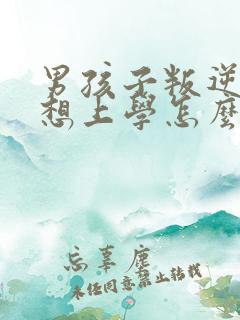 男孩子叛逆
想上學怎麼
忘辜塵
未经同意禁止转载